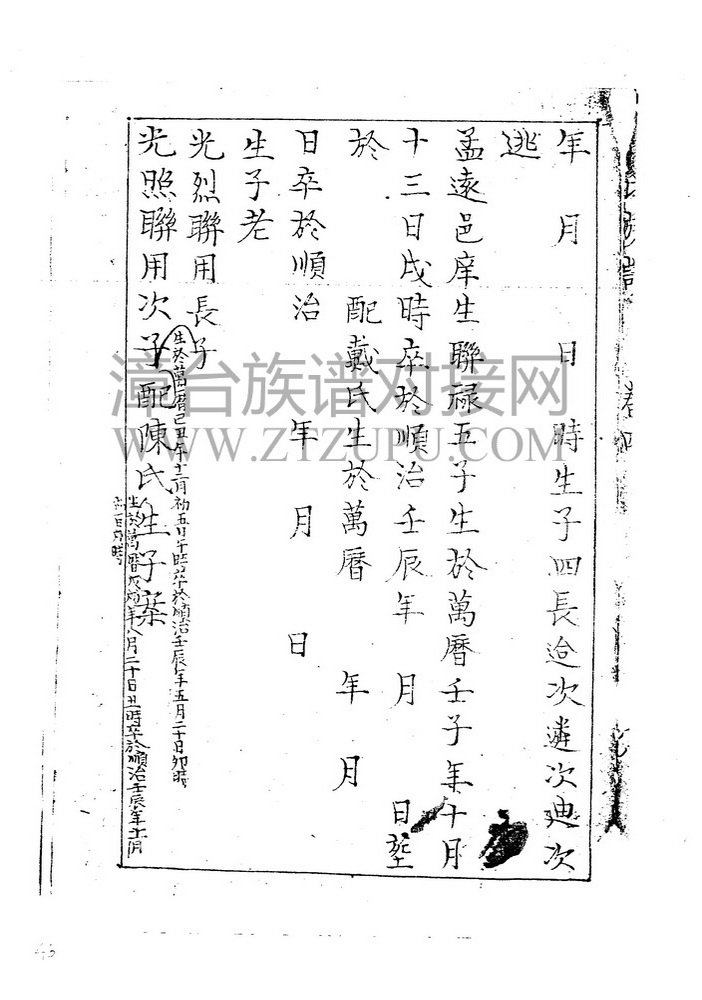 年 月 日 時生子四長迨次遴次迪次
逃
孟遠邑庠生聯祿五子生於萬曆壬子年十月
十三日戌時卒於順治壬辰年 月 日塟
於 配戴氏生於萬曆 年 月
日卒於順治 年 月 日
生子老
光烈聯用長子
生於萬曆己丑年十二月初五日午時卒於順治壬辰年五月二十日卯時
光照聯用次子配陳氏生子棻
年八月二十日丑時卒於順治壬辰年十一月
漳台族谱对接网
WWW.ZTZUPU.COM